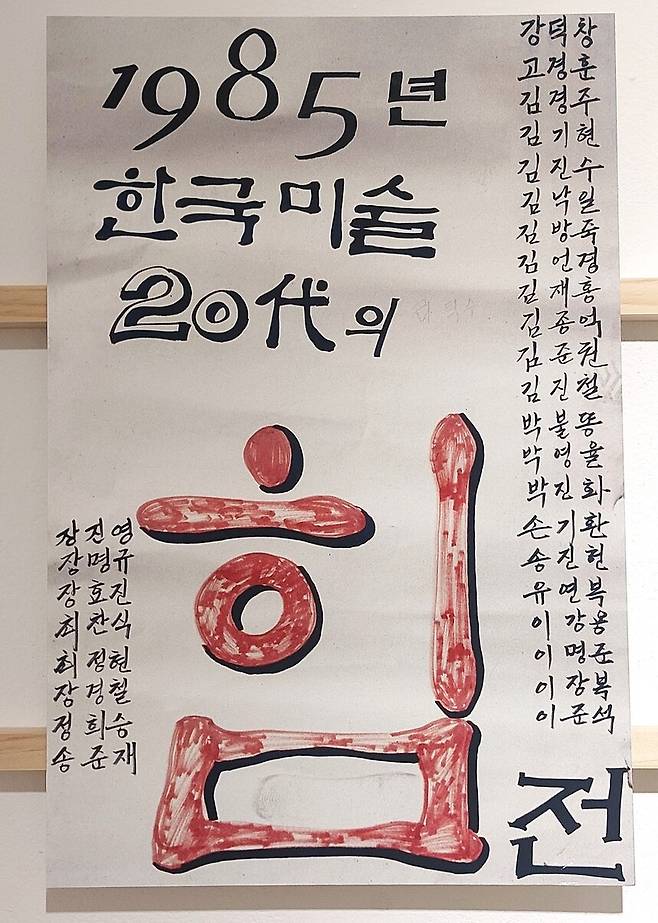 1985년
한국미술
20代의
힘
전
강덕창
고경훈
김경주
김기현
김진수
김낙일
김방죽
김언경
김재홍
김종억
김준권
김진철
박불똥
박영율
박진화
손기환
송진헌
유연복
이강용
이명준
이장복
이준석
장진영
장명규
장호진
최찬식
최정현
장경철
정희승
송준재